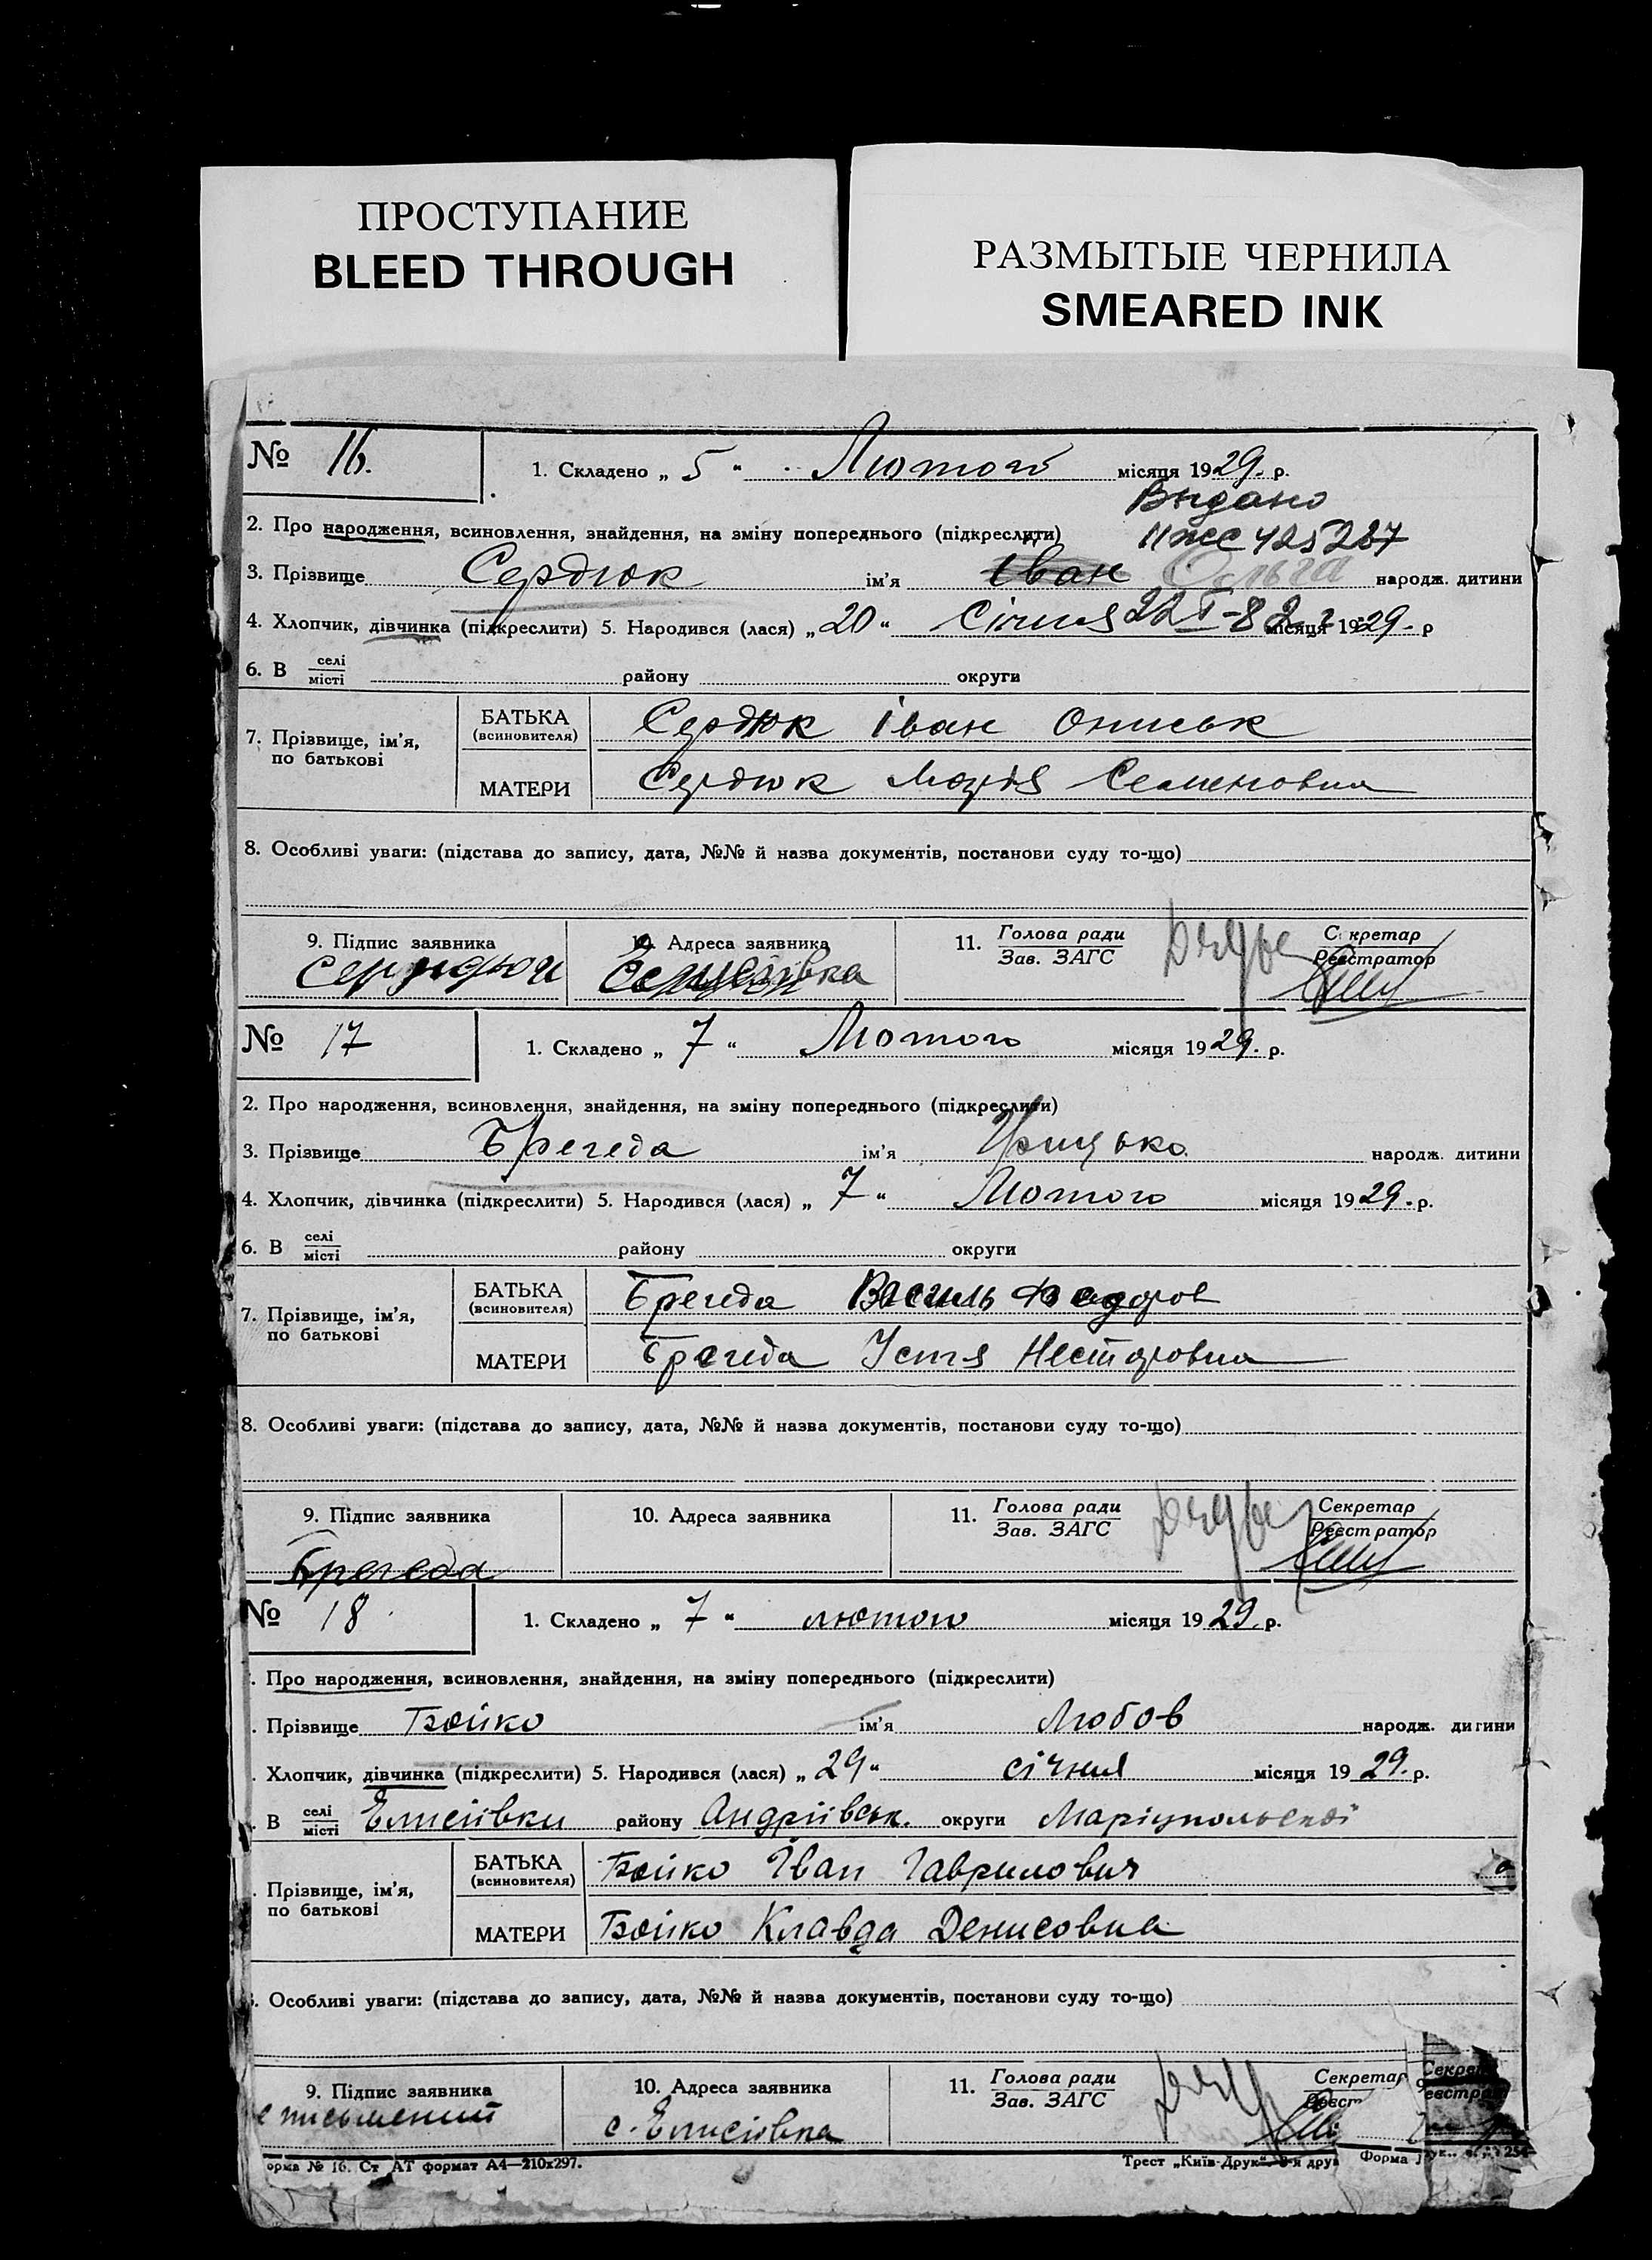 ПРОСТУПАНИЕ
BLEED THROUGH
РАЗМЫТЫЕ ЧЕРНИЛА
SMEARED INK
№ 16. 1. Складено „ 5 “ Лютого місяця 1929. р.
Выдано
2. Про народження, всиновлення, знайдення, на зміну попереднього (підкреслити) II ЖС 425287
3. Прізвище Сердюк ім’я Іван Ольга народж. дитини
4. Хлопчик, дівчинка (підкреслити) 5. Народився (лася) „ 20 “ Січня 22 I-82 г місяця 1929. р
6. В селі місті району округи
7. Прізвище, ім’я, по батькові
БАТЬКА (всиновителя) Сердюк Іван
МАТЕРИ Сердюк Марія Семеновна
8. Особливі уваги: (підстава до запису, дата, №№ й назва документів, постанови суду то-що)
9. Підпис заявника 10. Адреса заявника 11. Голова ради Зав. ЗАГС Секретар Реєстратор
№ 17 1. Складено „ 7 “ Лютого місяця 1929. р.
2. Про народження, всиновлення, знайдення, на зміну попереднього (підкреслити)
3. Прізвище Брегеда ім’я Грицько народж. дитини
4. Хлопчик, дівчинка (підкреслити) 5. Народився (лася) „ 7 “ Лютого місяця 1929. р.
6. В селі місті району округи
7. Прізвище, ім’я, по батькові
БАТЬКА (всиновителя) Брегеда Василь Федоров
МАТЕРИ Брегеда Устя Несторовна
8. Особливі уваги: (підстава до запису, дата, №№ й назва документів, постанови суду то-що)
9. Підпис заявника 10. Адреса заявника 11. Голова ради Зав. ЗАГС Секретар Реєстратор
Брегеда
№ 18 1. Складено „ 7 “ лютого місяця 1929. р.
. Про народження, всиновлення, знайдення, на зміну попереднього (підкреслити)
. Прізвище Бойко ім’я Любов народж. дитини
. Хлопчик, дівчинка (підкреслити) 5. Народився (лася) „ 29 “ січня місяця 1929. р.
. В селі місті Елисіївки району Андріївськ. округи Маріупольської
. Прізвище, ім’я, по батькові
БАТЬКА (всиновителя) Бойко Іван Гаврилович
МАТЕРИ Бойко Клавда Денисовна
. Особливі уваги: (підстава до запису, дата, №№ й назва документів, постанови суду то-що)
9. Підпис заявника 10. Адреса заявника 11. Голова ради Зав. ЗАГС Секретар
письмений с. Елисіївка
орма № 16. Ст АТ формат А4—210х297. Трест „Київ-Друк“ Форма